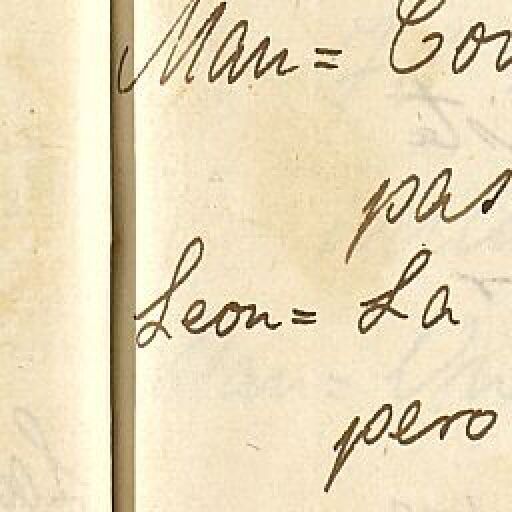 Man= Con
pas
Leon= La
pero